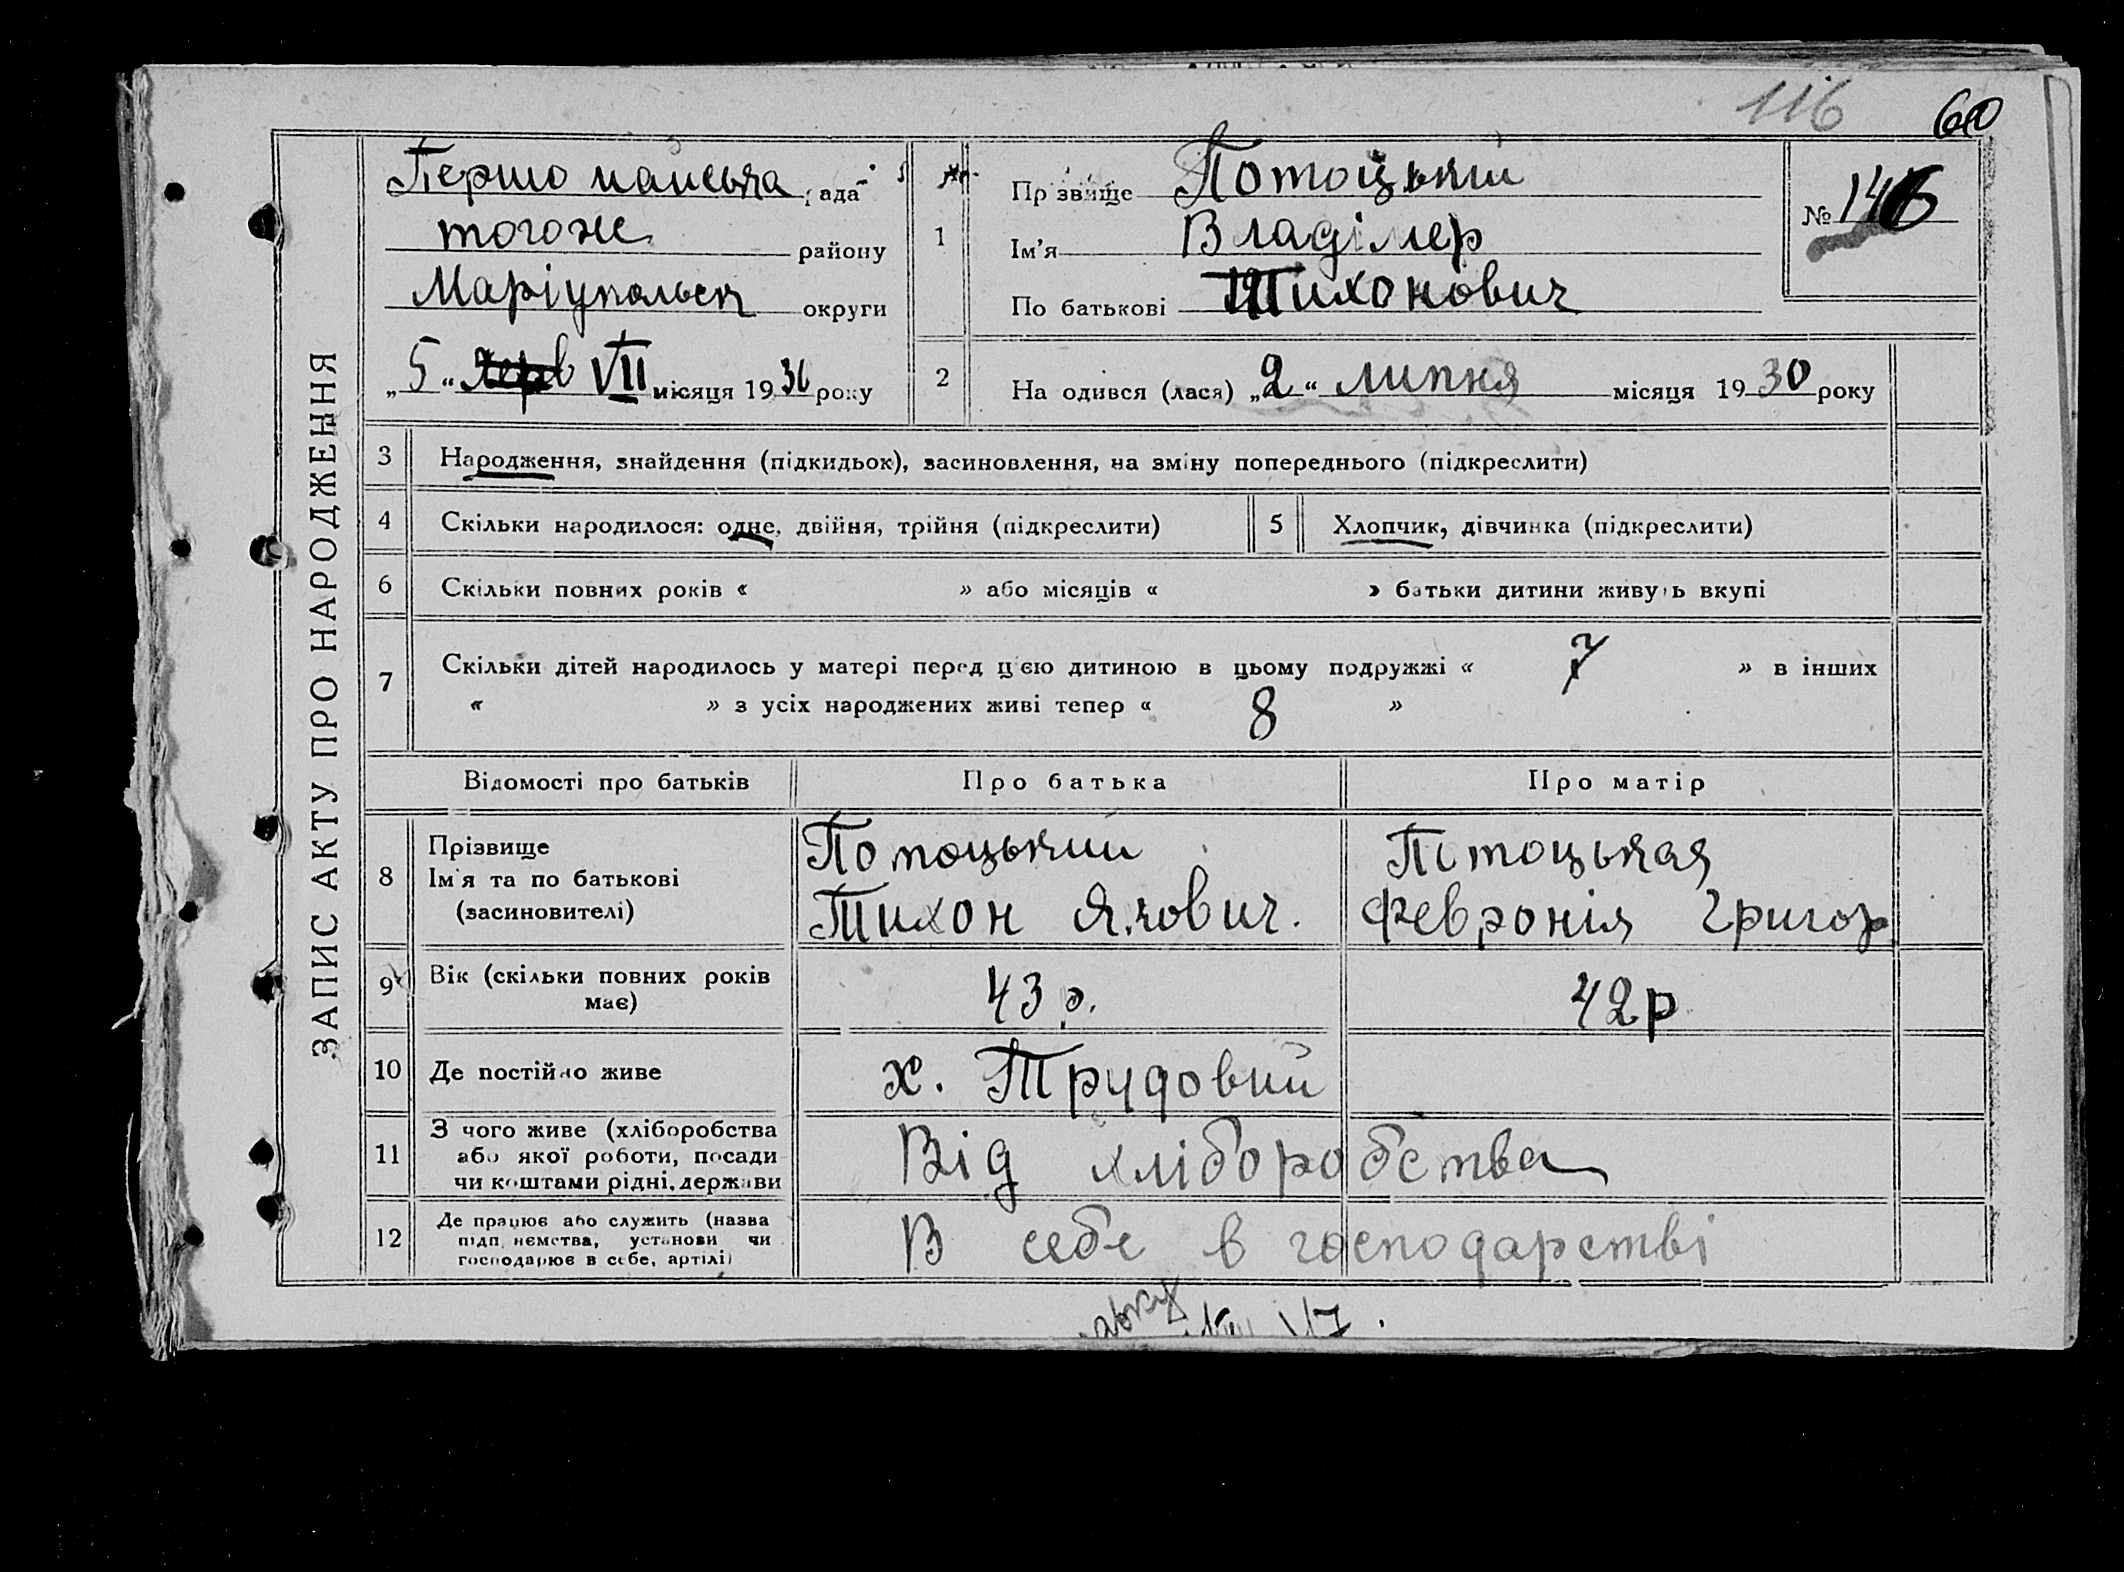 116 60
ЗАПИС АКТУ ПРО НАРОДЖЕННЯ
Першомайська рада
тогоже району
Маріупольськ округи
„5“ черв VII місяця 1930 року
1
Прізвище Потоцький
Ім’я Владімер
По батькові Тихонович
№ 146
2 Народився (лася) „2“ липня місяця 1930 року
3 Народження, знайдення (підкидьок), засиновлення, на зміну попереднього (підкреслити)
4 Скільки народилося: одне, двійня, трійня (підкреслити) 5 Хлопчик, дівчинка (підкреслити)
6 Скільки повних років « » або місяців « » батьки дитини живуть вкупі
7 Скільки дітей народилось у матері перед цією дитиною в цьому подружжі « 7 » в інших
« » з усіх народжених живі тепер « 8 »
Відомості про батьків Про батька Про матір
8 Прізвище
Ім’я та по батькові
(засиновителі)
Потоцький
Тихон
Потоцькая
Февронія Григор
9 Вік (скільки повних років
має)
43 р. 42 р
10 Де постійно живе х. Трудовий
11 З чого живе (хліборобства
або якої роботи, посади
чи коштами рідні, держави
Від хліборобства
12 Де працює або служить (назва
підприємства, установи чи
господарює в себе, артілі)
В себе в господарстві